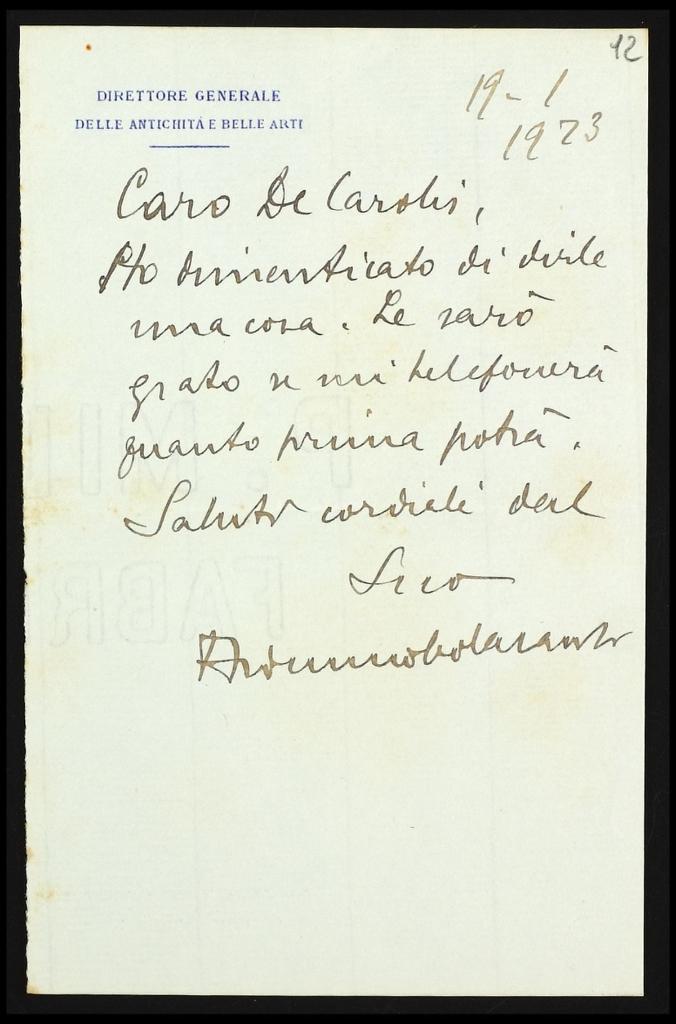 12
DIRETTORE GENERALE
DELLE ANTICHITÀ E BELLE ARTI
19 - 1
1923
Caro De Carolis,
Ho dimenticato di dirle
una cosa. Le sarò
grato se mi telefonerà
quanto prima potrà.
Saluti cordiali dal
Suo